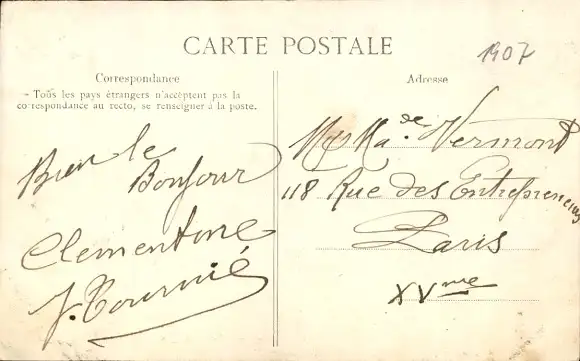 CARTE POSTALE
1907
Correspondance
Tous les pays étrangers n'acceptent pas la
correspondance au recto, se renseigner à la poste.
Bien le
Bonjour
Clementine
J. Tournié
Adresse
de Vermont
118 Rue des Entrepreneurs
Paris
XVme